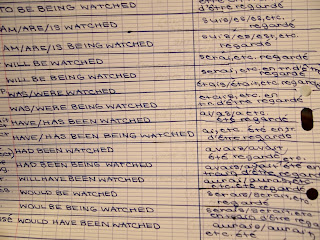 TO BE BEING WATCHED
d'être regardé
AM/ARE/IS WATCHED
suis/es/est, etc.
regardé
AM/ARE/IS BEING WATCHED
suis/es/est, etc.
regardé
WILL BE WATCHED
serai, etc. regardé
WILL BE BEING WATCHED
serai, etc. en tr. d'être
regardé
WAS/WERE WATCHED
étais/était, etc. regardé
WAS/WERE BEING WATCHED
étais, etc. en
tr. d'être regardé
HAVE/HAS BEEN WATCHED
ai/as/a etc.
regardé
HAVE/HAS BEEN BEING WATCHED
ai, etc. été en tr.
d'être regardé
HAD BEEN WATCHED
avais/avait,
été regardé etc.
HAD BEEN BEING WATCHED
avais/avait été en
train d'être regardé
WILL HAVE BEEN WATCHED
aurai/auras,
etc. été regardé
WOULD BE WATCHED
serais/serait, etc.
regardé
WOULD BE BEING WATCHED
serais/serait etc.
en train d'être regardé
WOULD HAVE BEEN WATCHED
aurais/aurait
etc. été